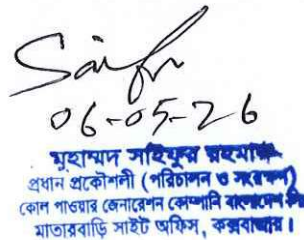 Saif
06-05-26
মুহাম্মদ সাইফুর রহমান
প্রধান প্রকৌশলী (পরিচালন ও সংরক্ষণ)
কোল পাওয়ার জেনারেশন কোম্পানি বাংলাদেশ লিঃ
মাতারবাড়ি সাইট অফিস, কক্সবাজার।